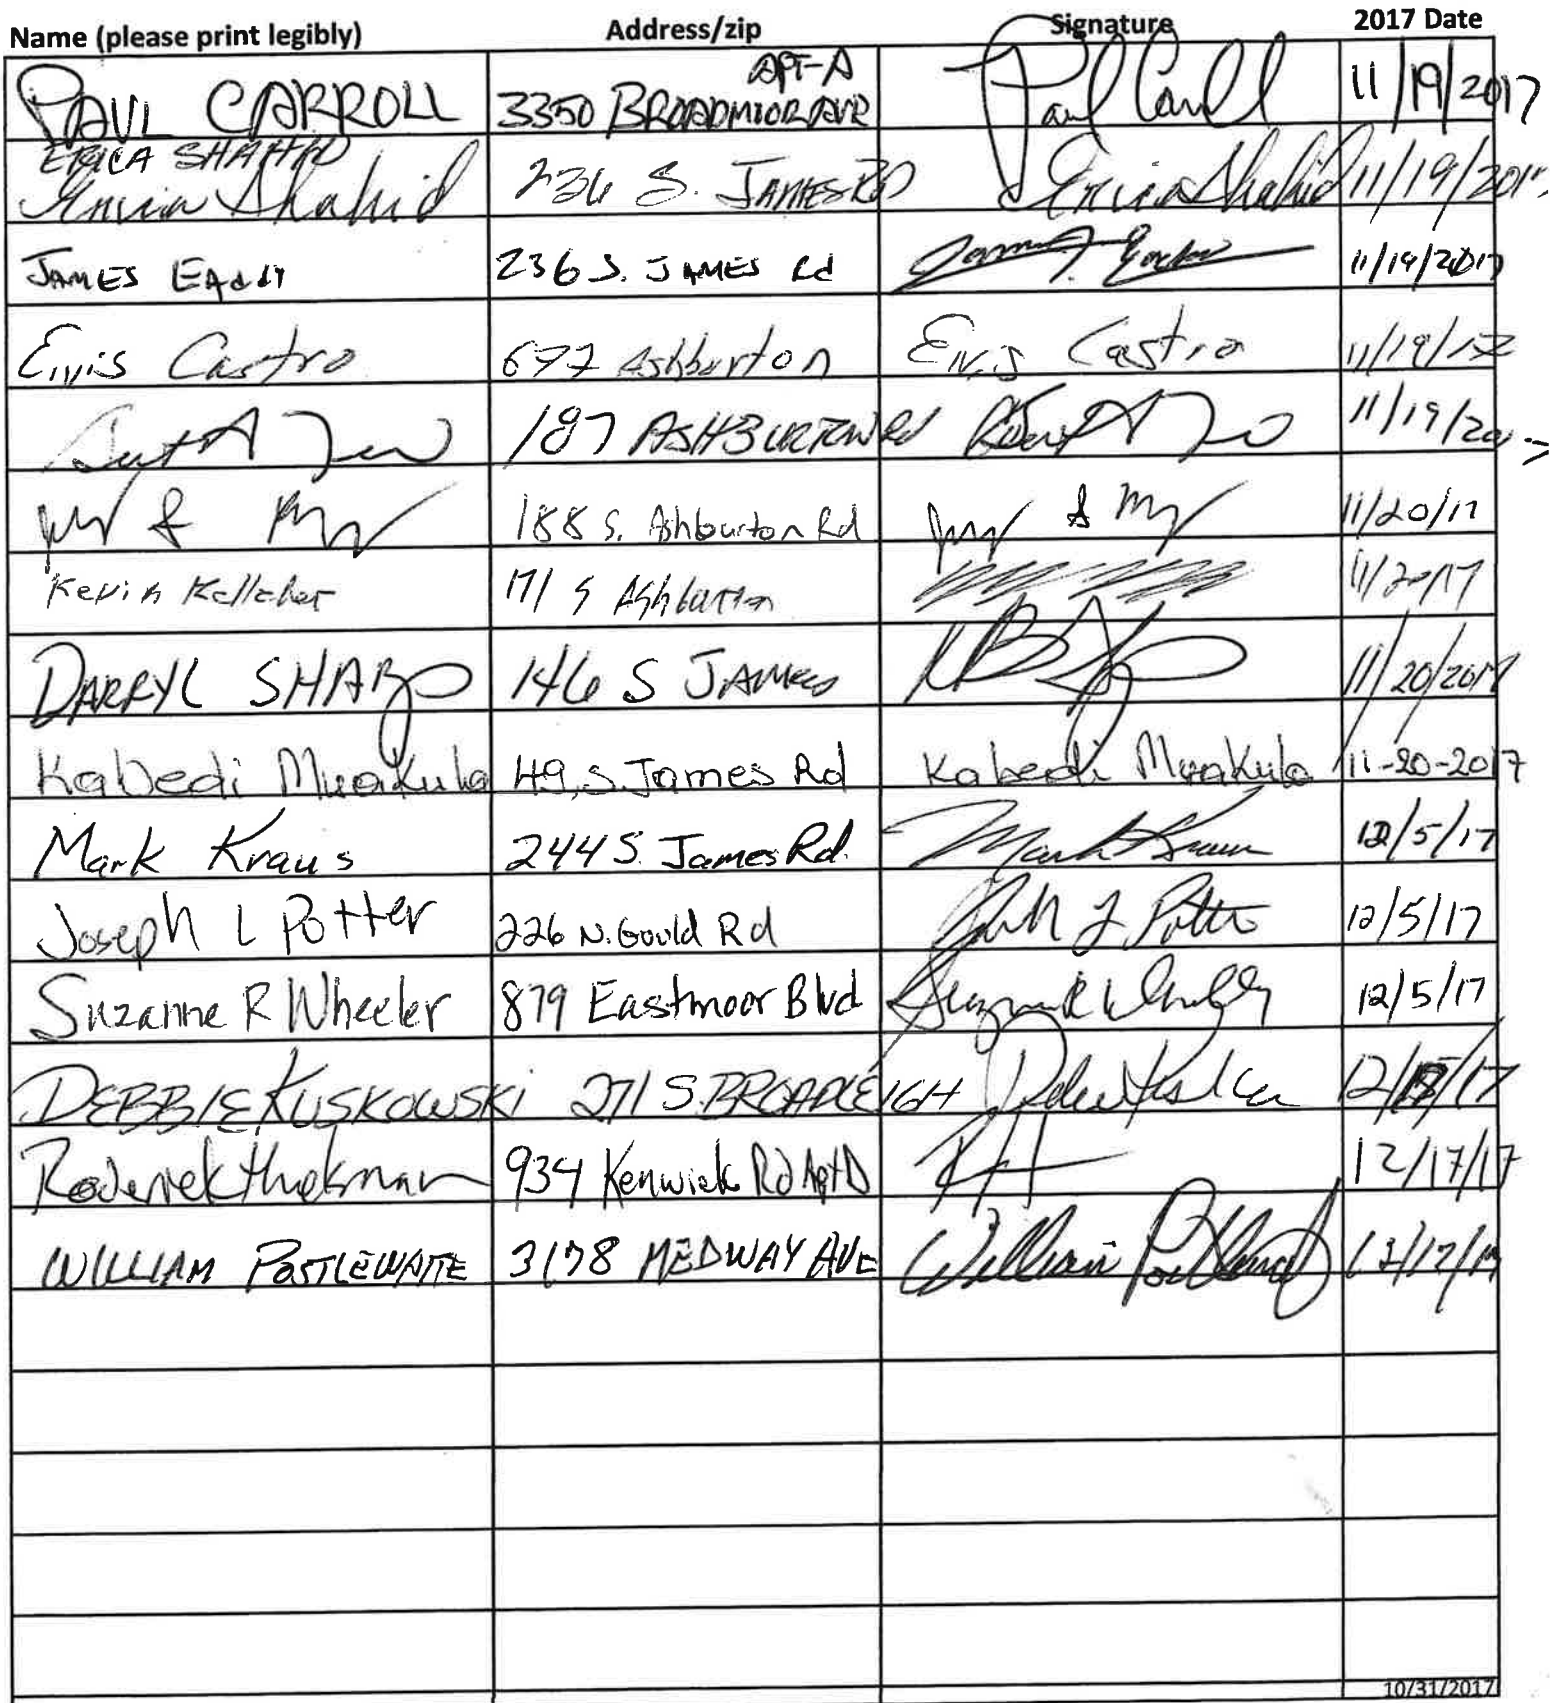 Name (please print legibly) Address/zip Signature 2017 Date
PAUL CARROLL 3350 BROADMOOR AVE APT-A Paul Carroll 11/19/2017
ERICA SHAHID
Erica Shahid 236 S. JAMES RD Erica Shahid 11/19/2017
JAMES EAddy 236 S. JAMES Rd 11/19/2017
Elvis Castro 677 Ashburton Elvis Castro 11/19/17
187 ASHBURTON Rd 11/19/2017
188 S. Ashburton Rd 11/20/17
Kevin Kelleher 171 S Ashburton 11/20/17
DARRYL SHARP 146 S JAMES 11/20/2017
Kabedi Mwakula 49, S. James Rd Kabedi Mwakula 11-20-2017
Mark Kraus 244 S. James Rd. Mark Kraus 12/5/17
Joseph L Potter 226 N. Gould Rd Potter 12/5/17
Suzanne R Wheeler 879 Eastmoor Blvd Suzanne R Wheeler 12/5/17
DEBBIE KUSKOWSKI 271 S. BROADLEIGH 12/17
Roderick 934 Kenwick Rd Apt D 12/17/17
WILLIAM POSTLEWAITE 3178 MEDWAY AVE William 12/17/17
10/31/2017